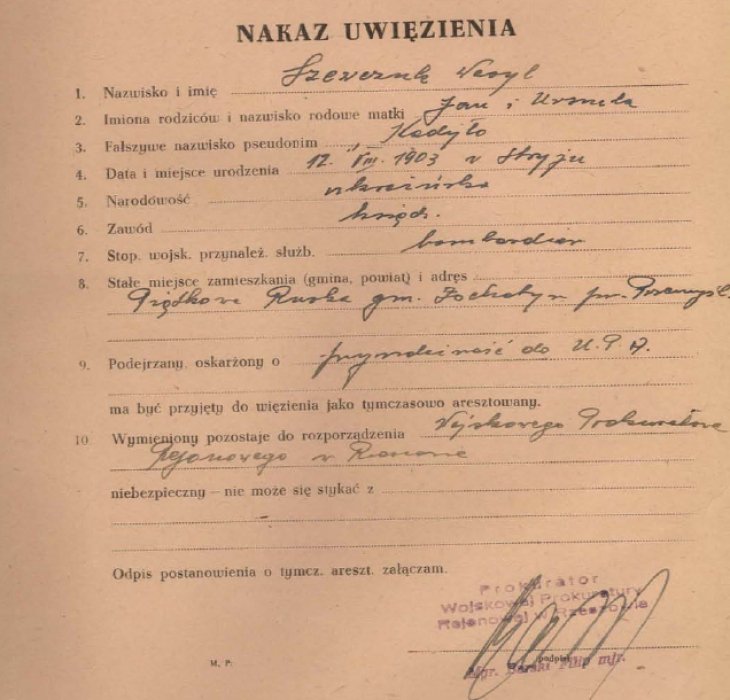 NAKAZ UWIĘZIENIA
1. Nazwisko i imię Szewczuk Wasyl
2. Imiona rodziców i nazwisko rodowe matki Jan i Urszula
3. Fałszywe nazwisko pseudonim "Kadyło
4. Data i miejsce urodzenia 12. VIII. 1903 w Stryju
5. Narodowość ukraińska
6. Zawód ksiądz.
7. Stop. wojsk. przynależ. służb. bombardier
8. Stałe miejsce zamieszkania (gmina, powiat) i adres
Piątkowa Ruska gm. pow. Przemyśl.
9. Podejrzany, oskarżony o przynależność do U.P.A.
ma być przyjęty do więzienia jako tymczasowo aresztowany.
10 Wymieniony pozostaje do rozporządzenia Wojskowego Prokuratora
Rejonowego w Rzeszowie
niebezpieczny — nie może się stykać z
Odpis postanowienia o tymcz. areszt. załączam.
Prokurator
Wojskowej Prokuratury
Rejonowej w Rzeszowie
M. P.
podpis
Mgr. Barski Filip mjr.